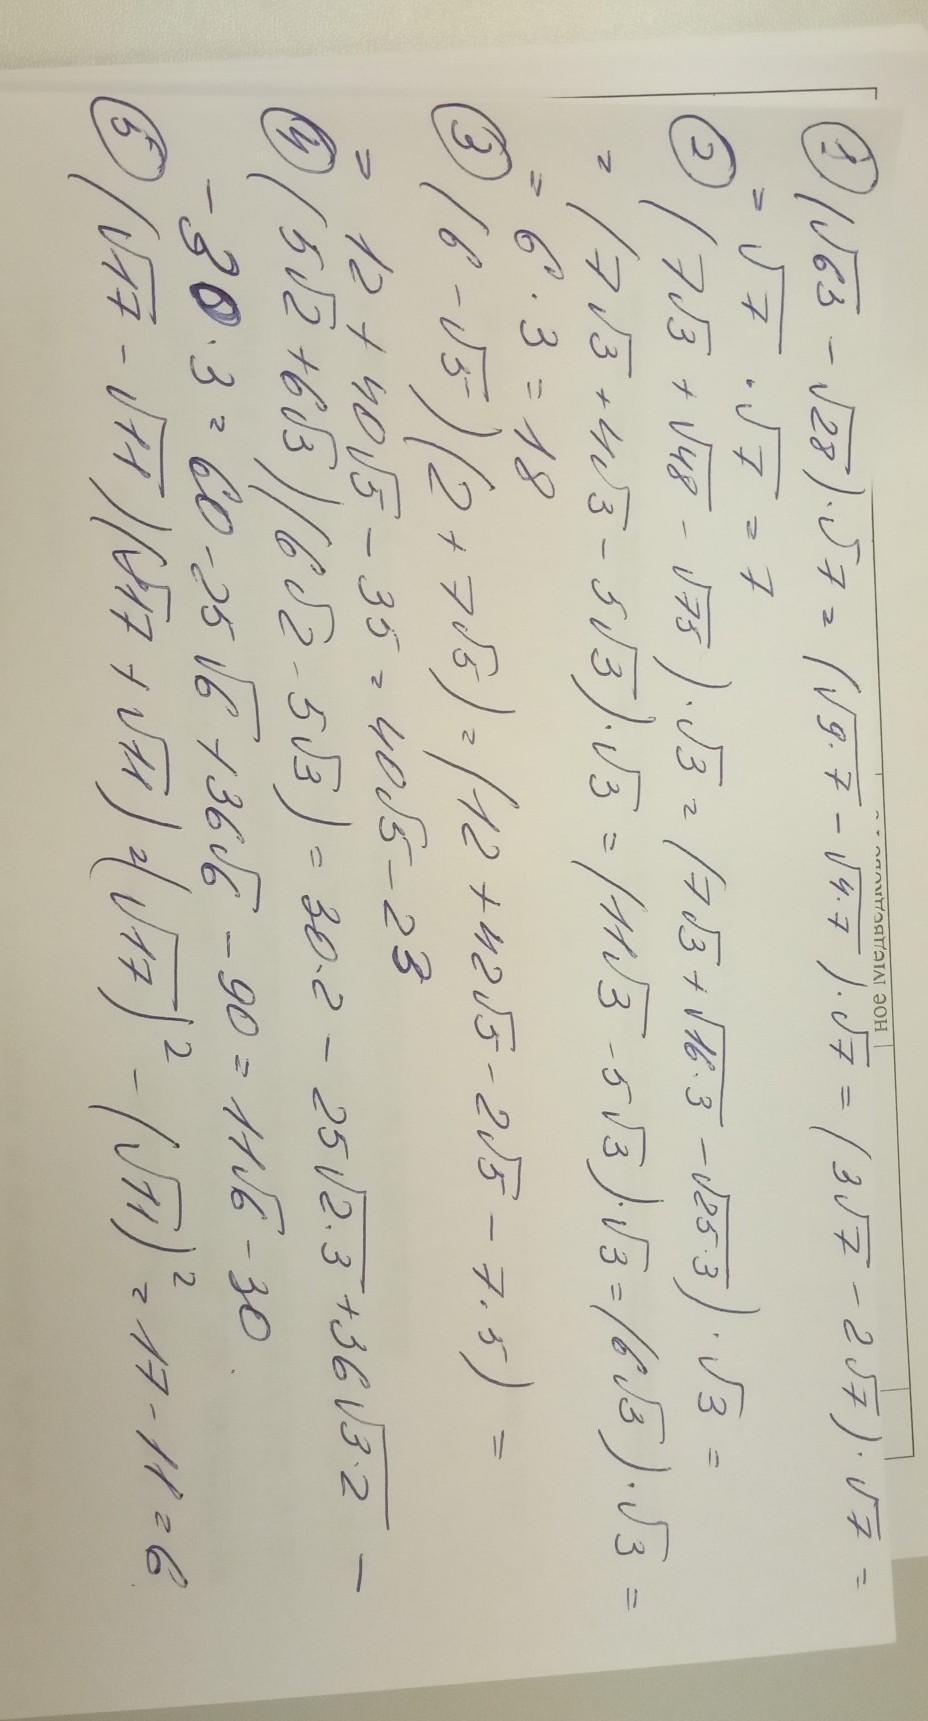 ① (√63 - √28)·√7 = (√9·7 - √4·7)·√7 = (3√7 - 2√7)·√7 =
= √7·√7 = 7
② (7√3 + √48 - √75)·√3 = (7√3 + √16·3 - √25·3)·√3 =
= (7√3 + 4√3 - 5√3)·√3 = (11√3 - 5√3)·√3 = (6√3)·√3 =
= 6·3 = 18
③ (6 - √5)(2 + 7√5) = (12 + 42√5 - 2√5 - 7·5) =
= 12 + 40√5 - 35 = 40√5 - 23
④ (5√2 + 6√3)(6√2 - 5√3) = 30·2 - 25√2·3 + 36√3·2 -
- 30·3 = 60 - 25√6 + 36√6 - 90 = 11√6 - 30
⑤ (√17 - √11)(√17 + √11) = (√17)² - (√11)² = 17 - 11 = 6